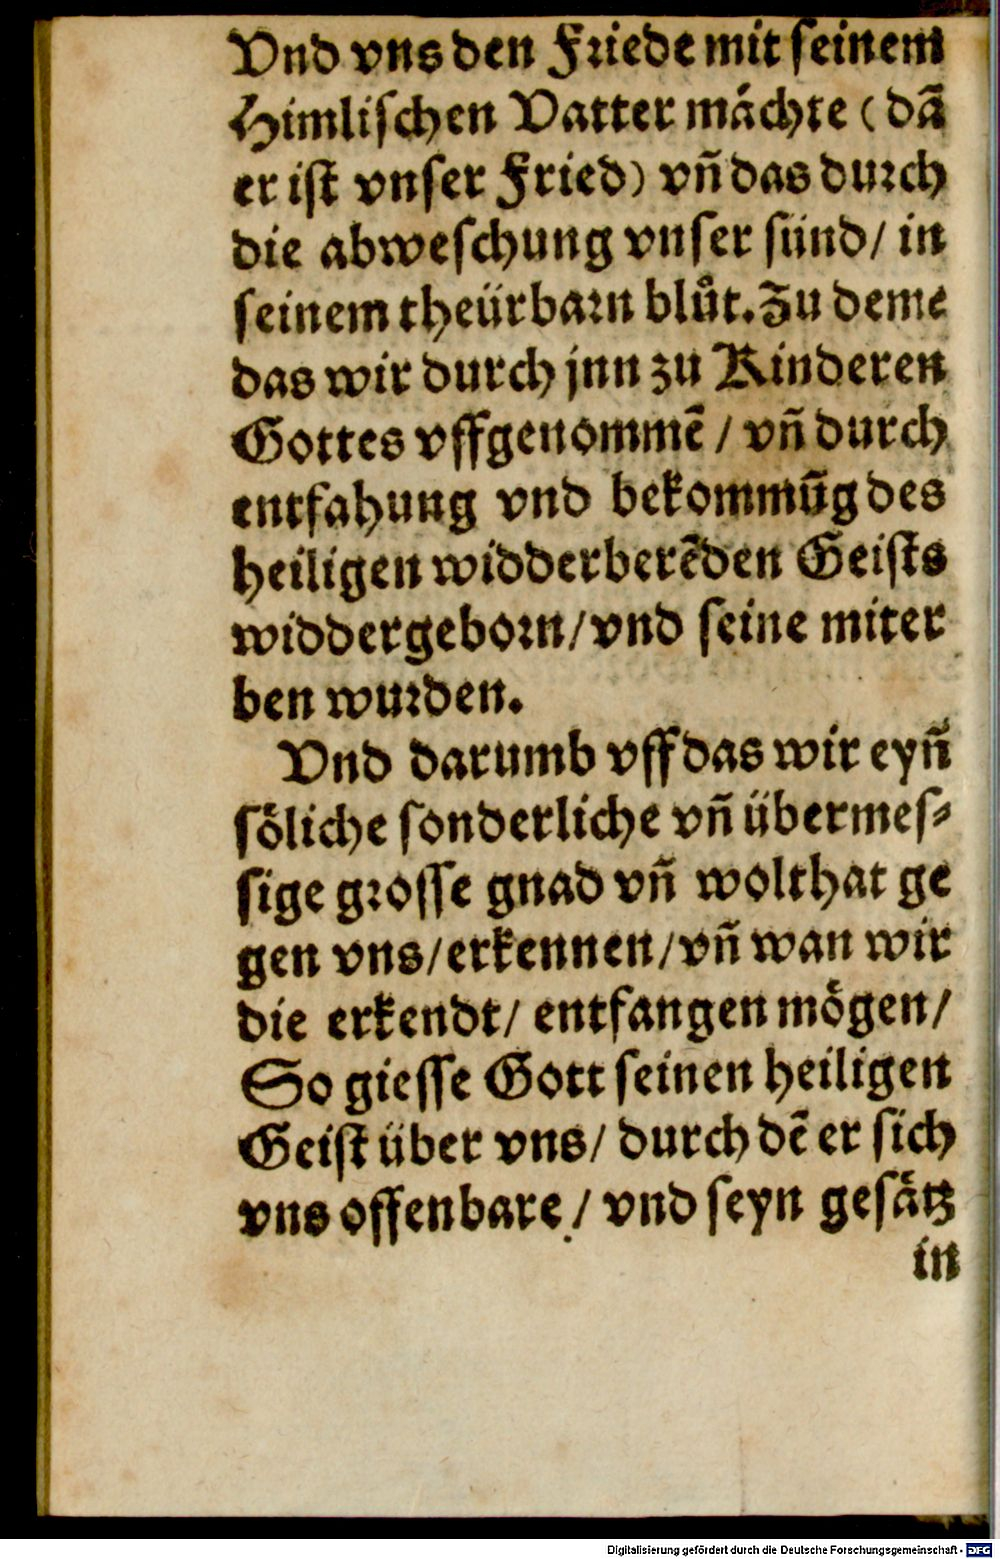 Vnd vns den Friede mit seinem
Himlischen Vatter måchte (dā
er ist vnser Fried) vñ das durch
die abweschung vnser sünd/ in
seinem theürbarn blůt. Zu deme
das wir durch jnn zu Kinderen
Gottes vffgenommē / vñ durch
entfahung vnd bekommūg des
heiligen widderberēden Geists
widdergeborn/vnd seine miter
ben wurden.
Vnd darumb vff das wir eyñ
sȏliche sonderliche vñ übermes⸗
sige grosse gnad vñ wolthat ge
gen vns/erkennen/vñ wan wir
die erkendt/ entfangen mȏgen/
So giesse Gott seinen heiligen
Geist über vns/ durch dē er sich
vns offenbare / vnd seyn gesåtz
in
Digitalisierung gefördert durch die Deutsche Forschungsgemeinschaft - DFG